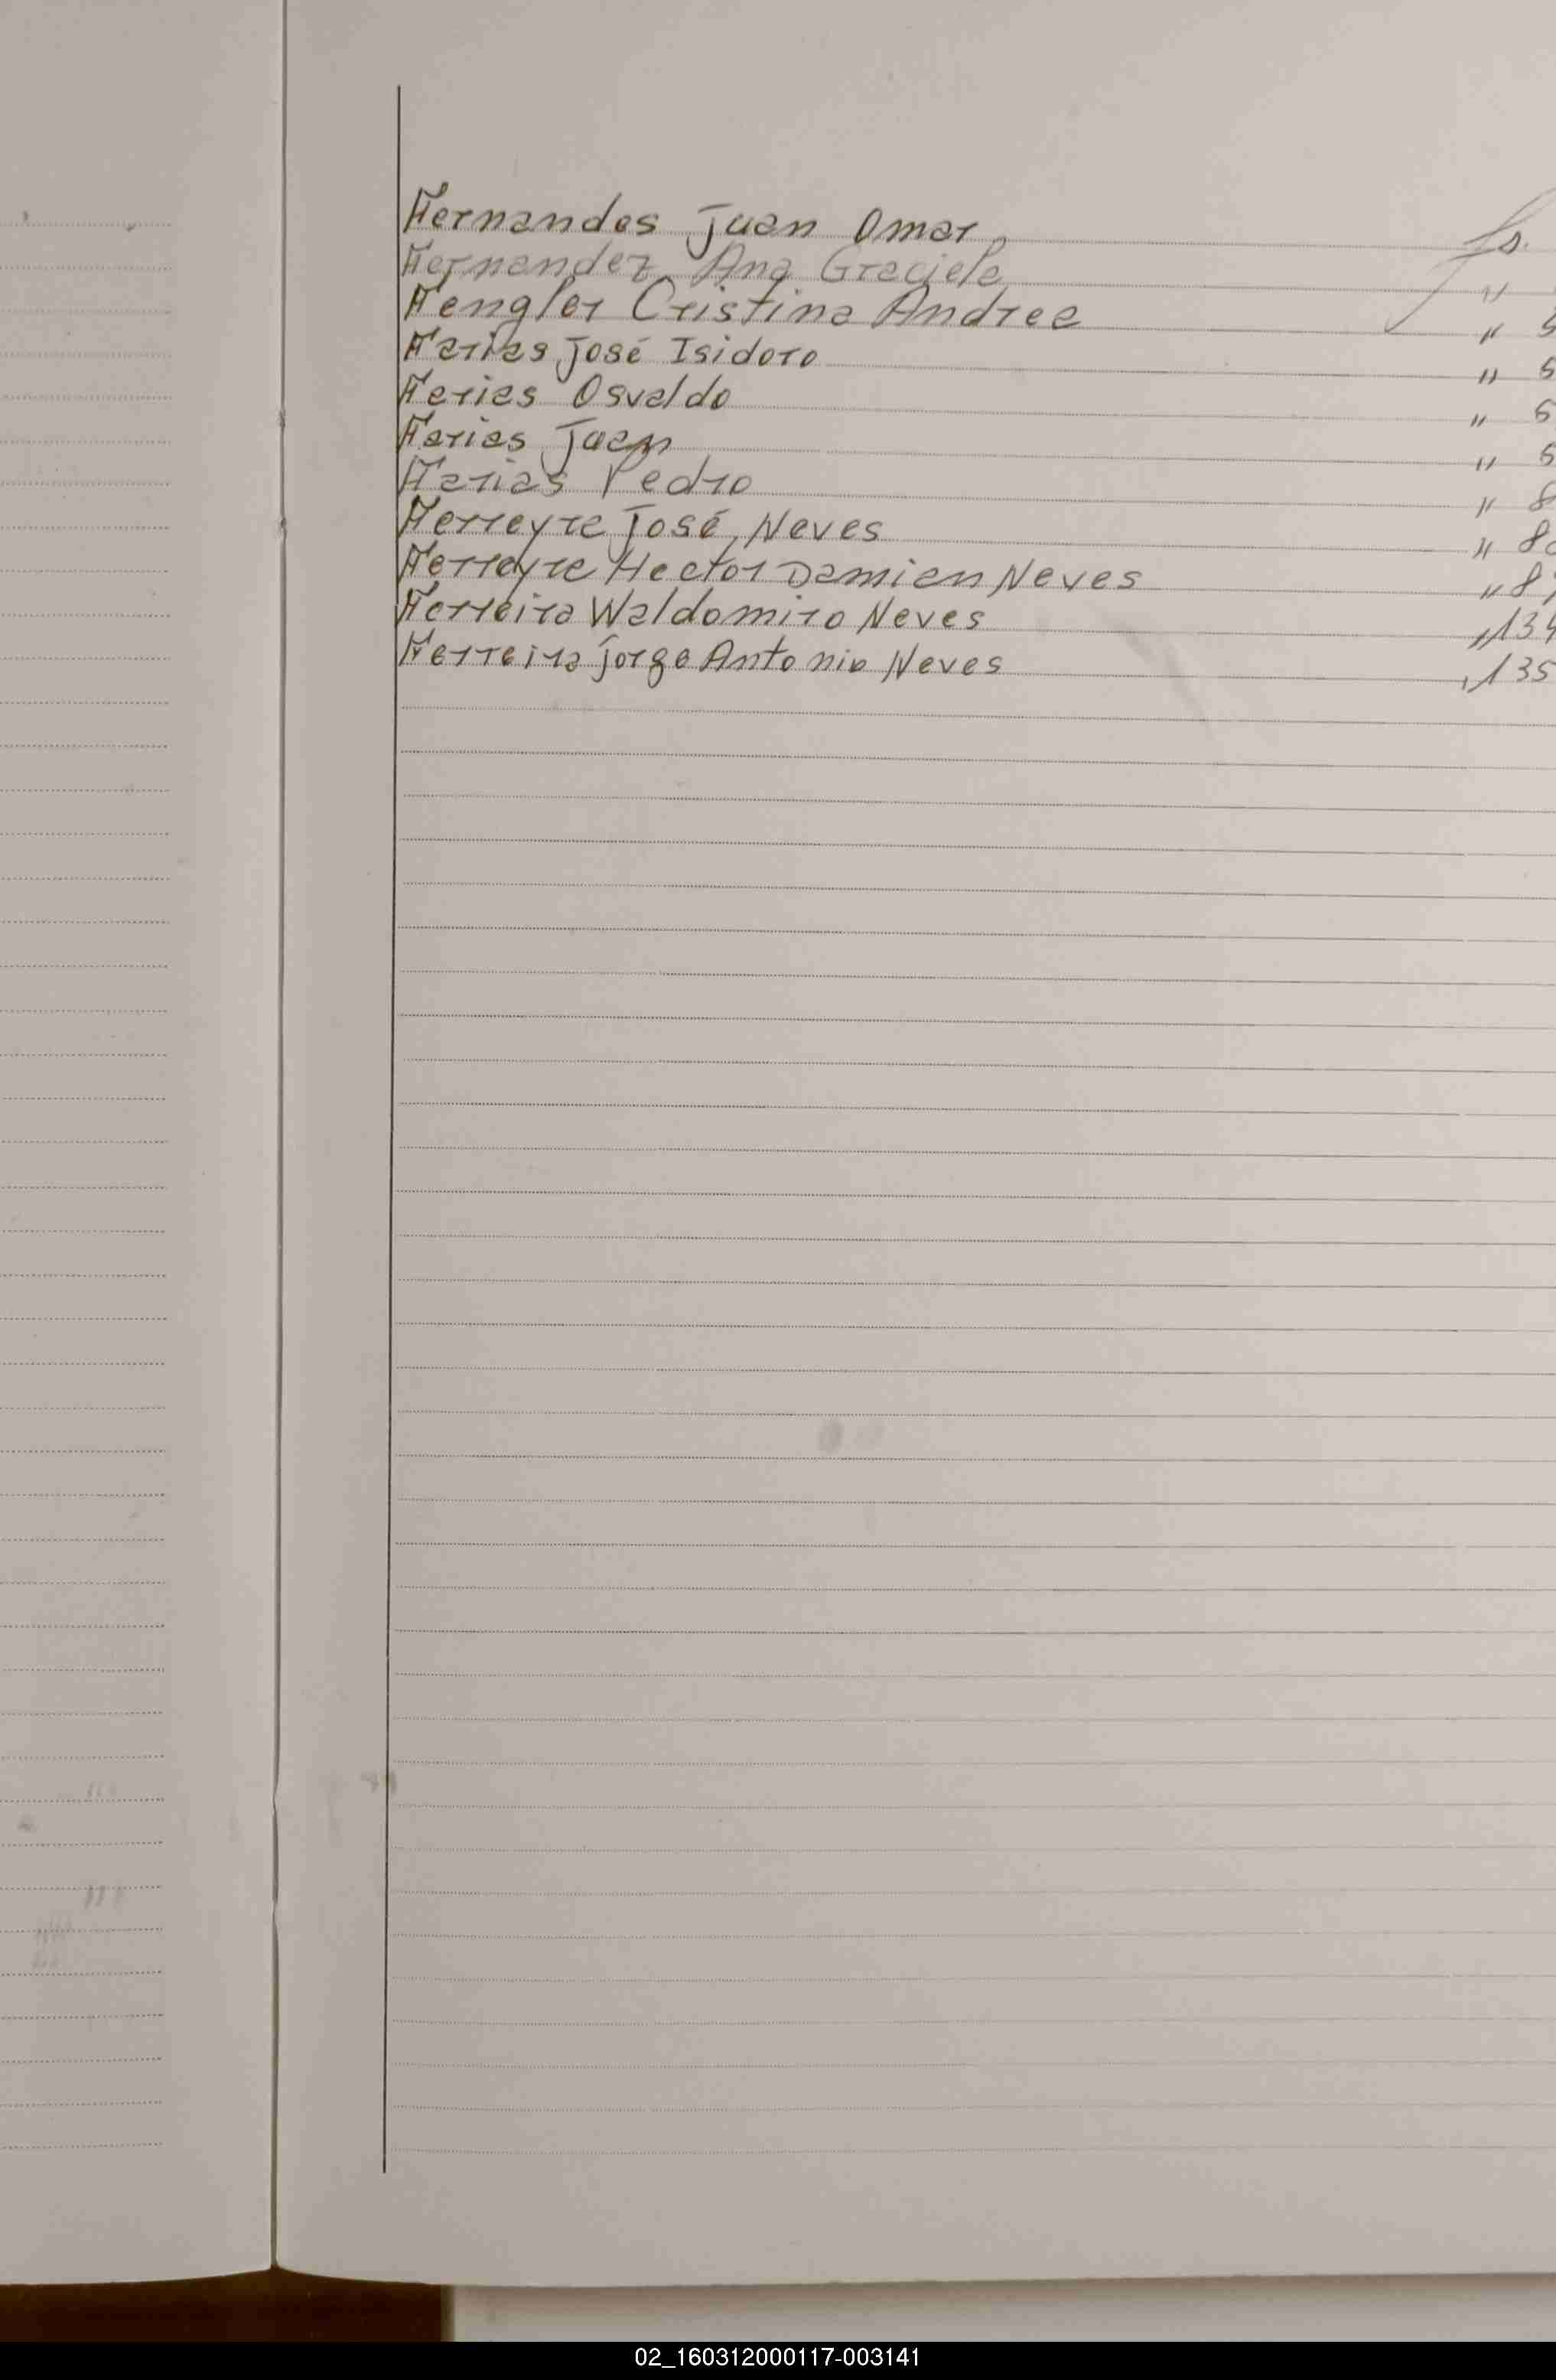 Fernandes Juan Omar fs.
Fernandez Ana Graciela "
Fengler Cristina Andrea " 5
Farias José Isidoro " 5
Farias Osvaldo " 5
Farias Juan " 5
Farias Pedro " 8
Ferreyra José Neves " 8
Ferreyra Hector Damian Neves " 8
Ferreira Waldomiro Neves " 134
Ferreira Jorge Antonio Neves " 135
02_160312000117-003141